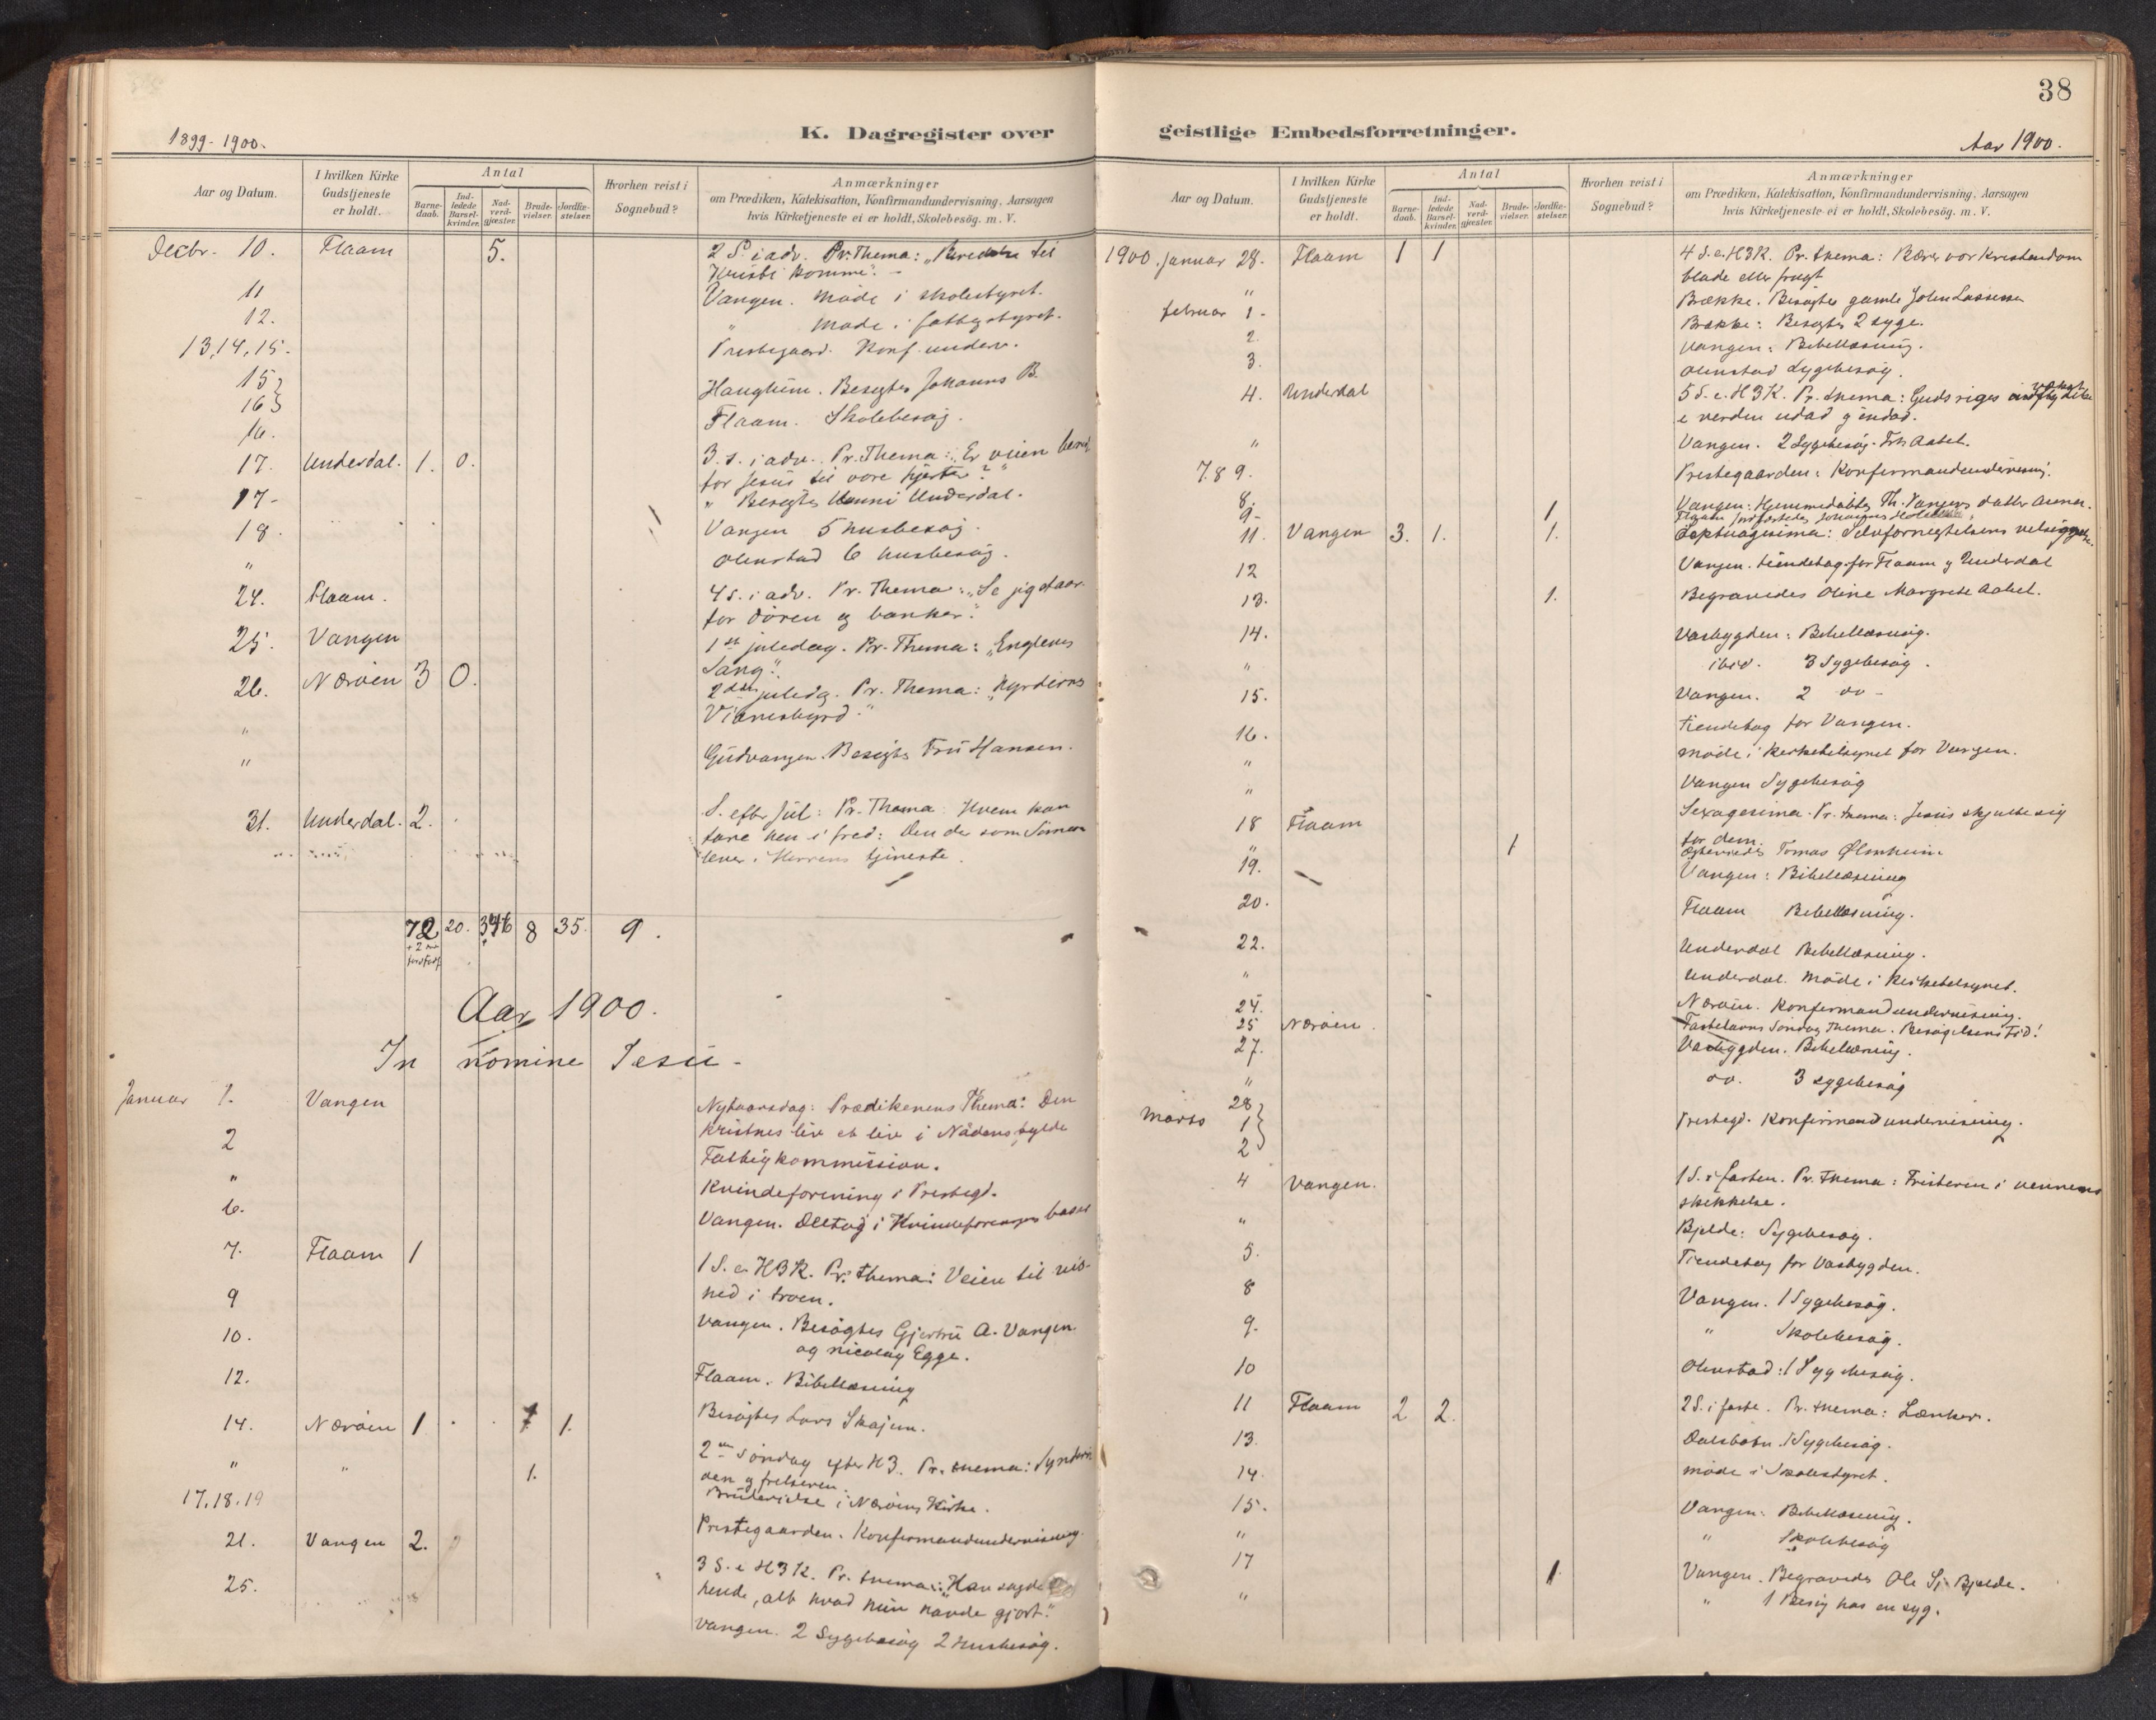 1899-1900.
K. Dagregister over
Aar og Datum.
I hvilken Kirke Gudstjeneste er holdt.
Antal
Barne-daab.
Ind-ledede Barsel-kvinder.
Nad-verd-gjester.
Brude-vielser.
Jordfæ-stelser.
Hvorhen reist i Sognebud?
Anmærkninger
om Prædiken, Katekisation, Konfirmandundervisning, Aarsagen
hvis Kirketjeneste ei er holdt, Skolebesög. m. V.
Decbr. 10. Flaam 5. 2 S. i adv. Pr. Thema: "
til
Kristi komme". -
11 Vangen. Møde i skolestyret.
12. " Møde i fattigstyret.
13, 14, 15. Prestegaard. Konf. underv.
15 Haugheim. Besøgtes Johannes B.
16
16. Flaam. Skolebesøg.
17. Underdal. 1. 0. 3. s. i adv. Pr. Thema: "Er veien
for Jesus til vore hjerter?"
17- " Besøgtes Underdal.
18. Vangen 5 husbesøg.
" Olenstad 6 husbesøg.
24. Flaam. 4 s. i adv. Pr. Thema: "Se jeg staar
for døren og banker".
25. Vangen 1ste juledag. Pr. Thema: "Englenes
Sang".
26. Nærøen 3 0. 2den juledg. Pr. Thema: "Hyrdernes
Vidnesbyrd."
"
" Gudvangen. Besøgtes Fru Hansen.
31. Underdal. 2. S. efter Jul: Pr. Thema: Hvem kan
fare hen i fred: Den der som Simeon
lever i Herrens tjeneste.
72 20. 346 8 35. 9.
Aar 1900.
In nomine Jesu -
Januar 1. Vangen Nytaarsdag: Prædikenens Thema: Den
kristnes liv et liv i Nådens fylde
2 Fattigkommission.
" Kvindeforening i Prestegd.
6. Vangen. Deltog i Kvindeforeningens basar
7. Flaam 1 1 S. e. H3K. Pr. thema: Veien til vis-
hed i troen.
9 Vangen. Besøgtes Gjertru A. Vangen
og Nicolay Egge.
10. Flaam. Bibellæsning
12. Besøgtes Lars Skajem.
14. Nærøen 1 1. 2den Søndag efter H3. Pr. thema:
den og frelseren.
" " 1. Brudevielse i Nærøens Kirke.
17. 18. 19 Prestegaarden. Konfirmandundervisning.
21. Vangen 2. 3 S. e H3K. Pr. thema: "Han sagde
hende, alt hvad hun havde gjort."
25. Vangen. 2 Sygebesøg 2 Husbesøg.
38
geistlige Embedsforretninger.
Aar 1900.
Aar og Datum.
I hvilken Kirke Gudstjeneste er holdt.
Antal
Barne-daab.
Ind-ledede Barsel-kvinder.
Nad-verd-gjester.
Brude-vielser.
Jordfæ-stelser.
Hvorhen reist i Sognebud?
Anmærkninger
om Prædiken, Katekisation, Konfirmandundervisning, Aarsagen
hvis Kirketjeneste ei er holdt, Skolebesög. m. V.
1900. Januar 28. Flaam 1 1 4 S. e. H3K. Pr. thema: Bærer vor Kristendom
blade eller frugt
" Brække. Besøgtes gamle John Lassesen
Februar 1. Brække: Besøgtes 2 syge.
2. Vangen: Bibellæsning.
3. Olenstad Sygebesøg.
4. Underdal 5 S. e. H3K. Pr. thema: Guds riges vækst
i verden udad og indad.
" Vangen. 2 Sygebesøg. Frk Aabel.
7. 8 9. Prestegaarden: Konfirmandundervisning.
8. Vangen: Hjemmedøbtes Th. Vangens datter Anna.
9- 1 Flaam Jordfæstedes Johannes
11. Vangen 3. 1. 1. Septuagesima: Selvfornegtelsens velsignelse.
12 Vangen. tiendetag. for Flaam og Underdal
13. 1. Begravedes Oline Margrete Aabel.
14. Vasbygden: Bibellæsning.
" ibid. 3 Sygebesøg.
15. Vangen. 2 do -
16. Tiendetag for Vangen.
" Møde i Kirketilsynet for Vangen.
" Vangen Sygebesøg
18 Flaam Sexagesima. Pr. thema: Jesus skjulte sig
for dem.
" 1 Ægteviedes Tomas Ølmheim.
19. Vangen: Bibellæsning
20. Flaam Bibellæsning.
22. Underdal Bibellæsning.
" Underdal. Møde i Kirketilsynet.
24. Nærøen. Konfirmandundervisning.
25 Nærøen. Fastelavns Søndag Thema. Besøgelsens Tid!
27. Vasbygden. Bibellæsning.
" do. 3 sygebesøg
28
Marts 1 Prestegd. Konfirmandundervisning.
2
4 Vangen. 1 S. i fasten. Pr. thema: Fristeren i vennens
skikkelse.
" Bjelde: Sygebesøg.
5. Tiendetag for Vasbygden.
8 Vangen. 1 Sygebesøg.
9. " Skolebesøg.
10 Olenstad: 1 Sygebesøg.
11 Flaam 2 2. 2 S. i faste. Pr. thema: Lænker.
13. Dalsbotn. 1 Sygebesøg.
14. Møde i Skolestyret.
15. Vangen. Bibellæsning.
" " Skolebesøg
17 1. Vangen. Begravedes Ole Sj. Bjelde.
" " 1 Besøg hos en syg.